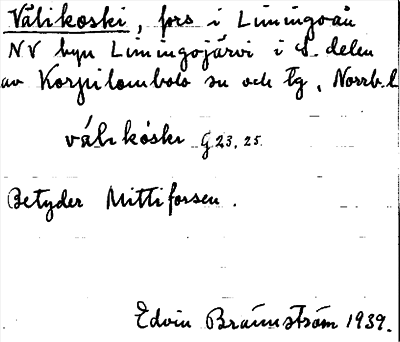 Välikoski, fors i Limingoån
NV byn Limingojärvi i S. delen
av Korpilombolo sn och tg, Norrb. l
välikoski G 23, 25.
Betyder Mittiforsen.
Edvin Brännström 1939.